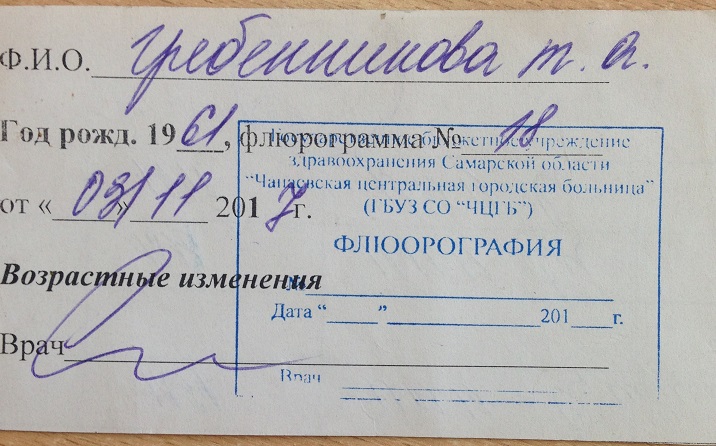 Ф.И.О. Гребенникова т. а.
Год рожд. 1961, флюрограмма № 18
от «03/11 2017г.
Возрастные изменения
Врач
Государственное бюджетное учреждение
здравоохранения Самарской области
"Чапаевская центральная городская больница"
(ГБУЗ СО "ЧЦГБ")
ФЛЮОРОГРАФИЯ
№
Дата "____"____________201___г.
Врач